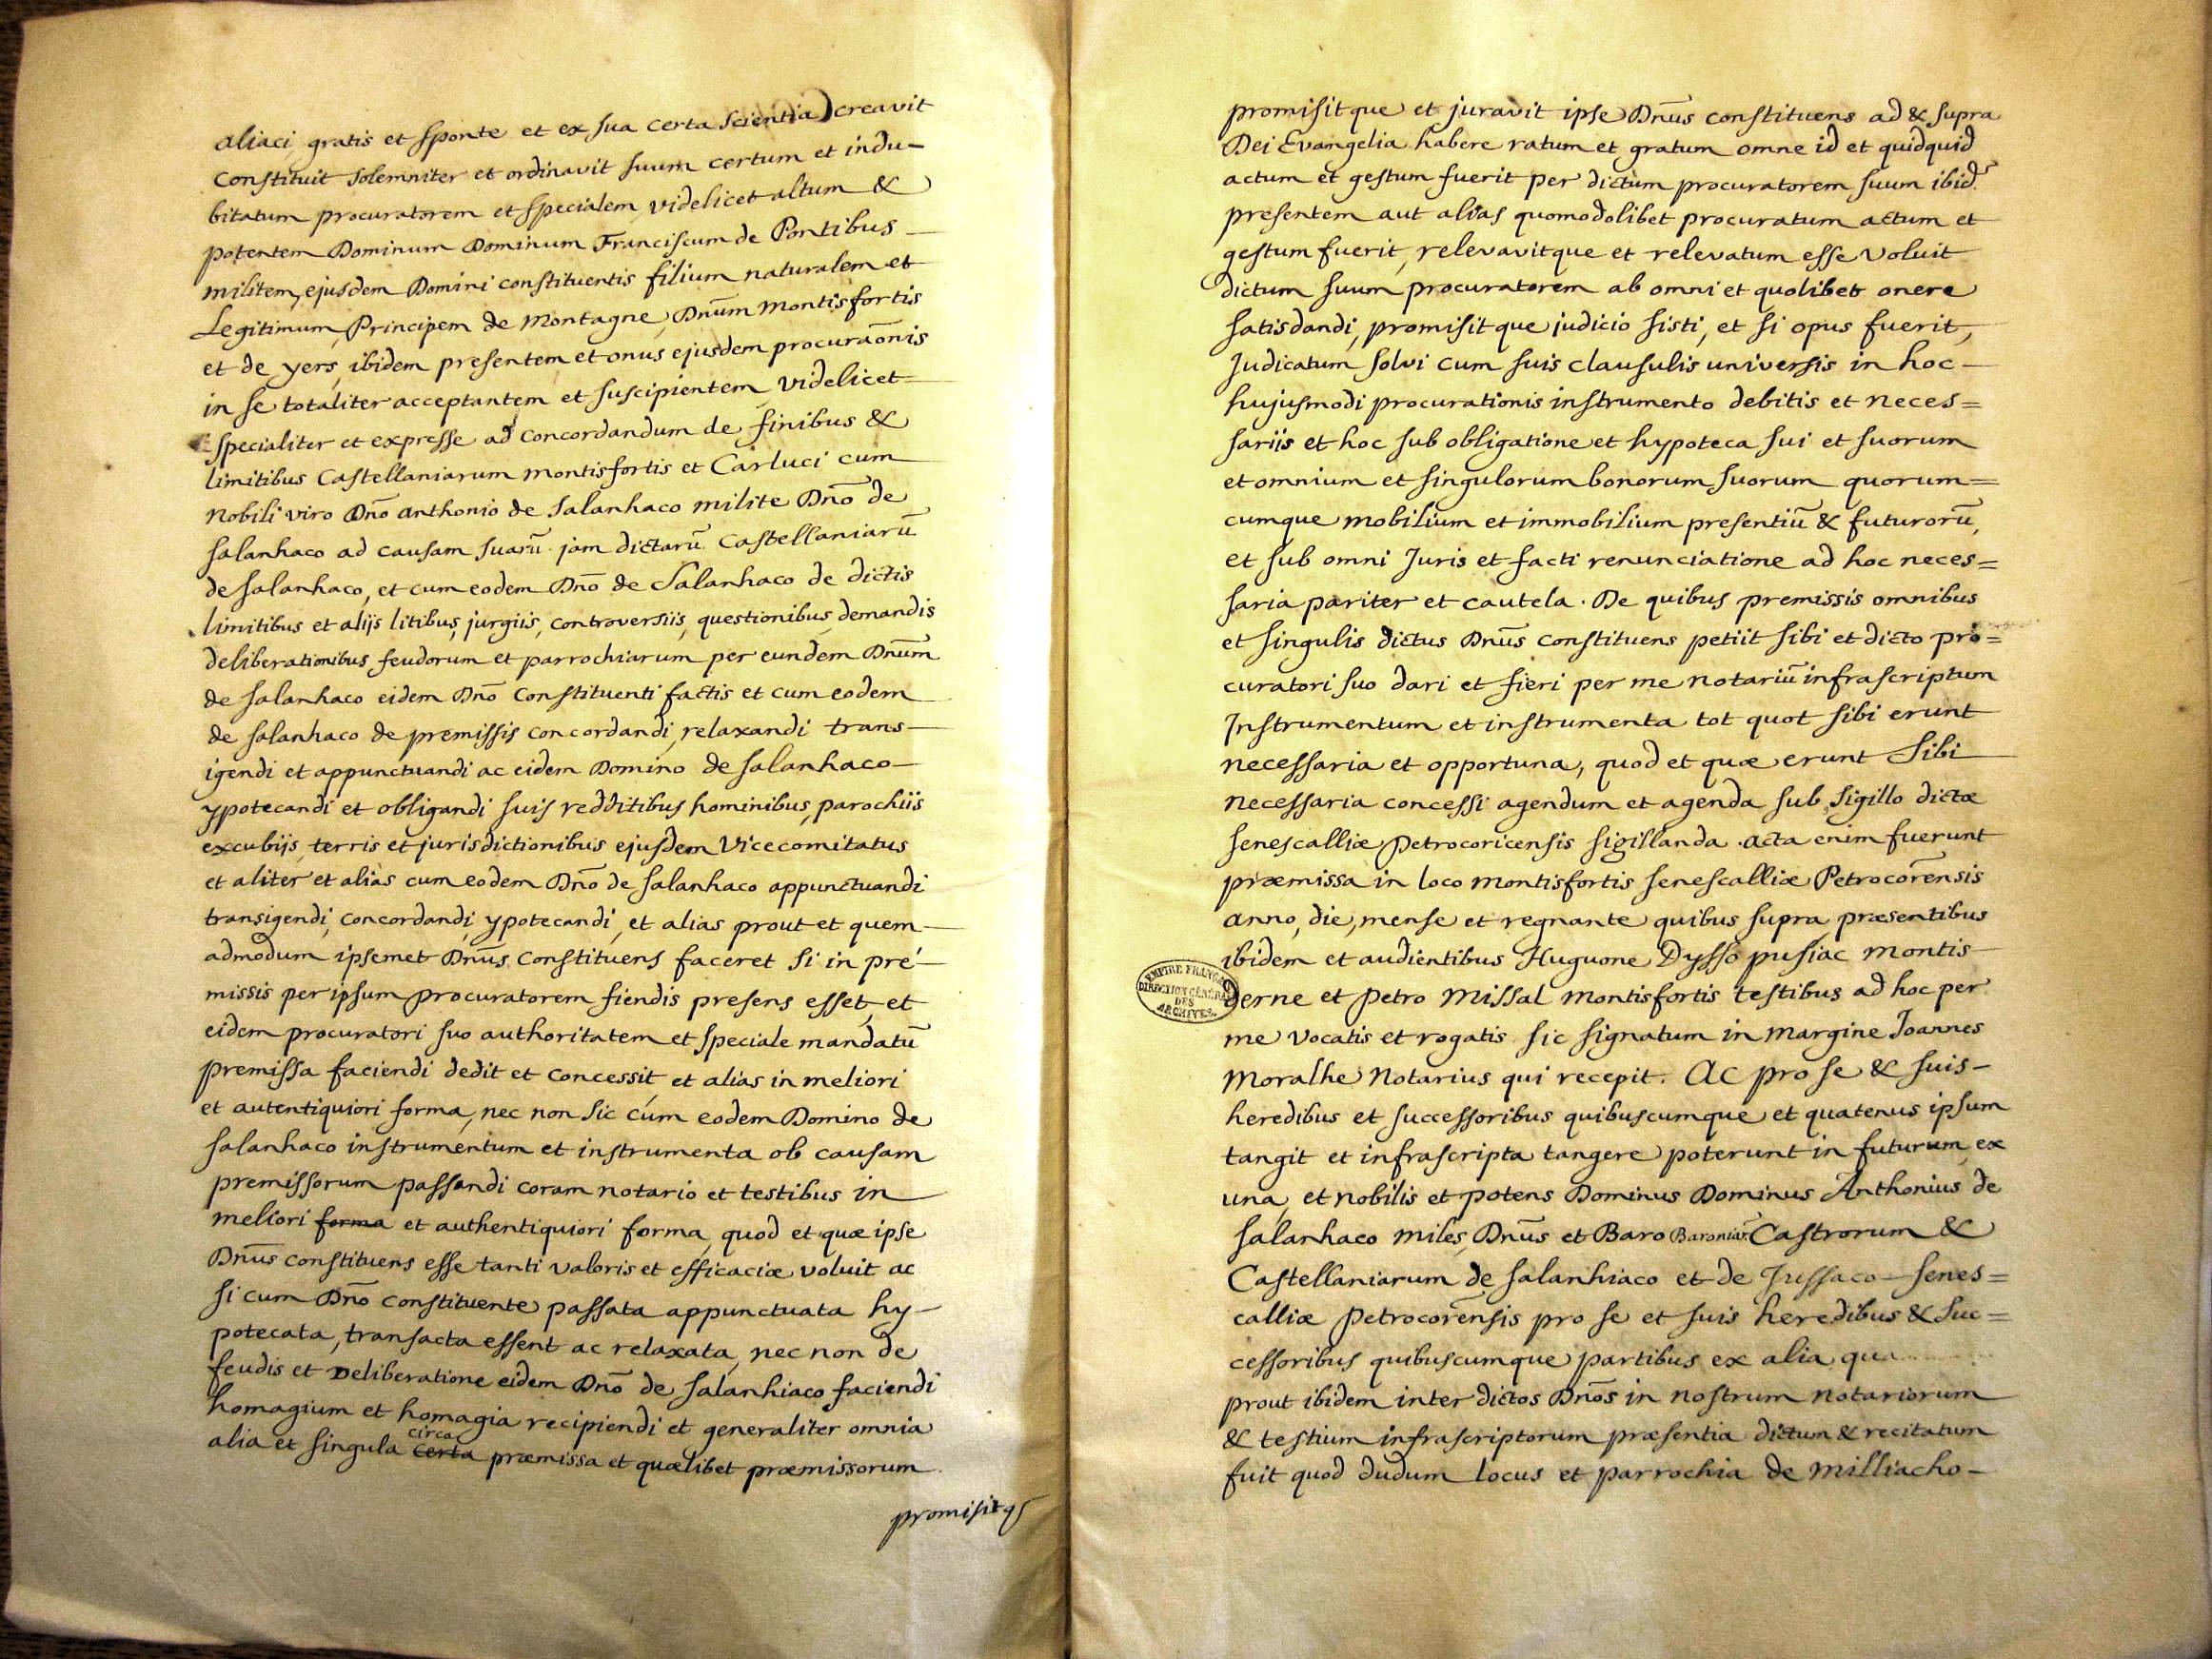 aliaci gratis et sponte et ex sua certa scientia) creavit
constituit solemniter et ordinavit suum certum et indu-
bitatum procuratorem et specialem videlicet altum &
potentem Dominum Dominum Franciscum de Pontibus
militem, ejusdem Domini constituentis filium naturalem et
Legitimum, Principem de Montagne, Dnūm Montisfortis
et de yers, ibidem presentem et onus ejusdem procuraōnis
in se totaliter acceptantem et suscipientem, videlicet
specialiter et expresse ad concordandum de finibus &
limitibus Castellaniarum montisfortis et Carluci cum
nobili viro Dnō anthonio de Salanhaco milite Dnō de
salanhaco ad causam suarū jam dictarū Castellaniarū
de salanhaco, et cum eodem Dnō de Salanhaco de dictis
limitibus et alijs litibus, jurgiis, controversiis, questionibus, demandis
deliberationibus, feudorum et parrochiarum per eundem Dnūm
de salanhaco eidem Dnō Constituenti factis et cum eodem
de salanhaco de premissis concordandi, relaxandi trans-
igendi et appunctuandi ac eidem Domino de salanhaco
ypotecandi et obligandi suis redditibus hominibus, parochiis
excubijs, terris et jurisdictionibus ejusdem Vicecomitatus
et aliter et alias cum eodem Dnō de salanhaco appunctuandi
transigendi, concordandi, ypotecandi, et alias prout et quem-
admodum ipsemet Dnūs Constituens faceret si in pre-
missis per ipsum procuratorem fiendis presens esset, et
eidem procuratori suo authoritatem et speciale mandatū
premissa faciendi dedit et concessit et alias in meliori
et autentiquiori forma, nec non sic cum eodem Domino de
salanhaco instrumentum et instrumenta ob causam
premissorum passandi coram notario et testibus in
meliori forma et authentiquiori forma, quod et quæ ipse
Dnūs constituens esse tanti valoris et efficaciæ voluit ac
si cum Dnō constituente passata appunctuata hy-
potecata, transacta essent ac relaxata, nec non de
feudis et Deliberatione eidem Dnō de salanhiaco faciendi
homagium et homagia recipiendi et generaliter omnia
alia et singula certa circa præmissa et quælibet præmissorum
promisitq
promisitque et juravit ipse Dnūs constituens ad & supra
Dei Evangelia habere ratum et gratum omne id et quidquid
actum et gestum fuerit per dictum procuratorem suum ibid.
presentem aut alias quomodolibet procuratum actum et
gestum fuerit, relevavitque et relevatum esse voluit
dictum suum procuratorem ab omni et quolibet onere
satisdandi, promisitque judicio sisti, et si opus fuerit,
Judicatum solvi cum suis clausulis universis in hoc
hujusmodi procurationis instrumento debitis et neces=
sariis et hoc sub obligatione et hypoteca sui et suorum
et omnium et singulorum bonorum suorum quorum=
cumque mobilium et immobilium presentiū & futurorū,
et sub omni Juris et facti renunciatione ad hoc neces=
saria pariter et cautela. De quibus premissis omnibus
et singulis dictus Dnūs constituens petiit sibi et dicto pro=
curatori suo dari et fieri per me notariū infrascriptum
Instrumentum et instrumenta tot quot sibi erunt
necessaria et opportuna, quod et quæ erunt sibi
necessaria concessi agendum et agenda sub sigillo dictæ
senescalliæ Petrocoricensis sigillanda. acta enim fuerunt
præmissa in loco montisfortis senescalliæ Petrocorēnsis
anno, die, mense et regnante quibus supra, præsentibus
ibidem et audientibus Huguone Dysso pusiac Montis
EMPIRE FRANÇAIS
DIRECTION GÉNÉRALE
DES
ARCHIVES.
derne et Petro Missal montisfortis testibus ad hoc per
me vocatis et rogatis sic signatum in margine Joannes
Moralhe Notarius qui recepit. Ac pro se & suis
heredibus et successoribus quibuscumque et quatenus ipsum
tangit et infrascripta tangere poterunt in futurum ex
una, et nobilis et potens Dominus Dominus Anthonius de
salanhaco miles, Dnūs et Baro Baroniar. Castrorum &
Castellaniarum de salanhiaco et de Jussaco senes=
calliæ Petrocorēnsis pro se et suis heredibus & suc=
cessoribus quibuscumque partibus ex alia qua
prout ibidem inter dictos Dnōs in nostrum notariorum
& testium infrascriptorum præsentia dictum & recitatum
fuit quod dudum locus et parrochia de Milliacho